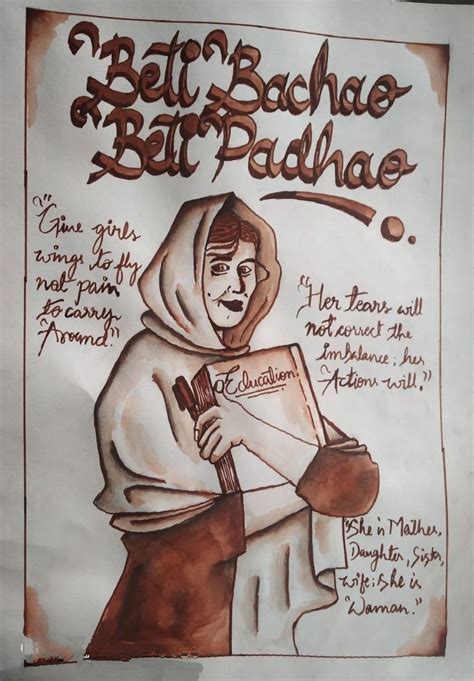 "Beti Bachao
Beti Padhao!
"Give girls
wings to fly
not pain
to carry
Around."
"Her tears will
not correct the
imbalance; her
Actions will."
Education
"She is Mather,
Daughter, Sister,
wife; she is
"Woman."